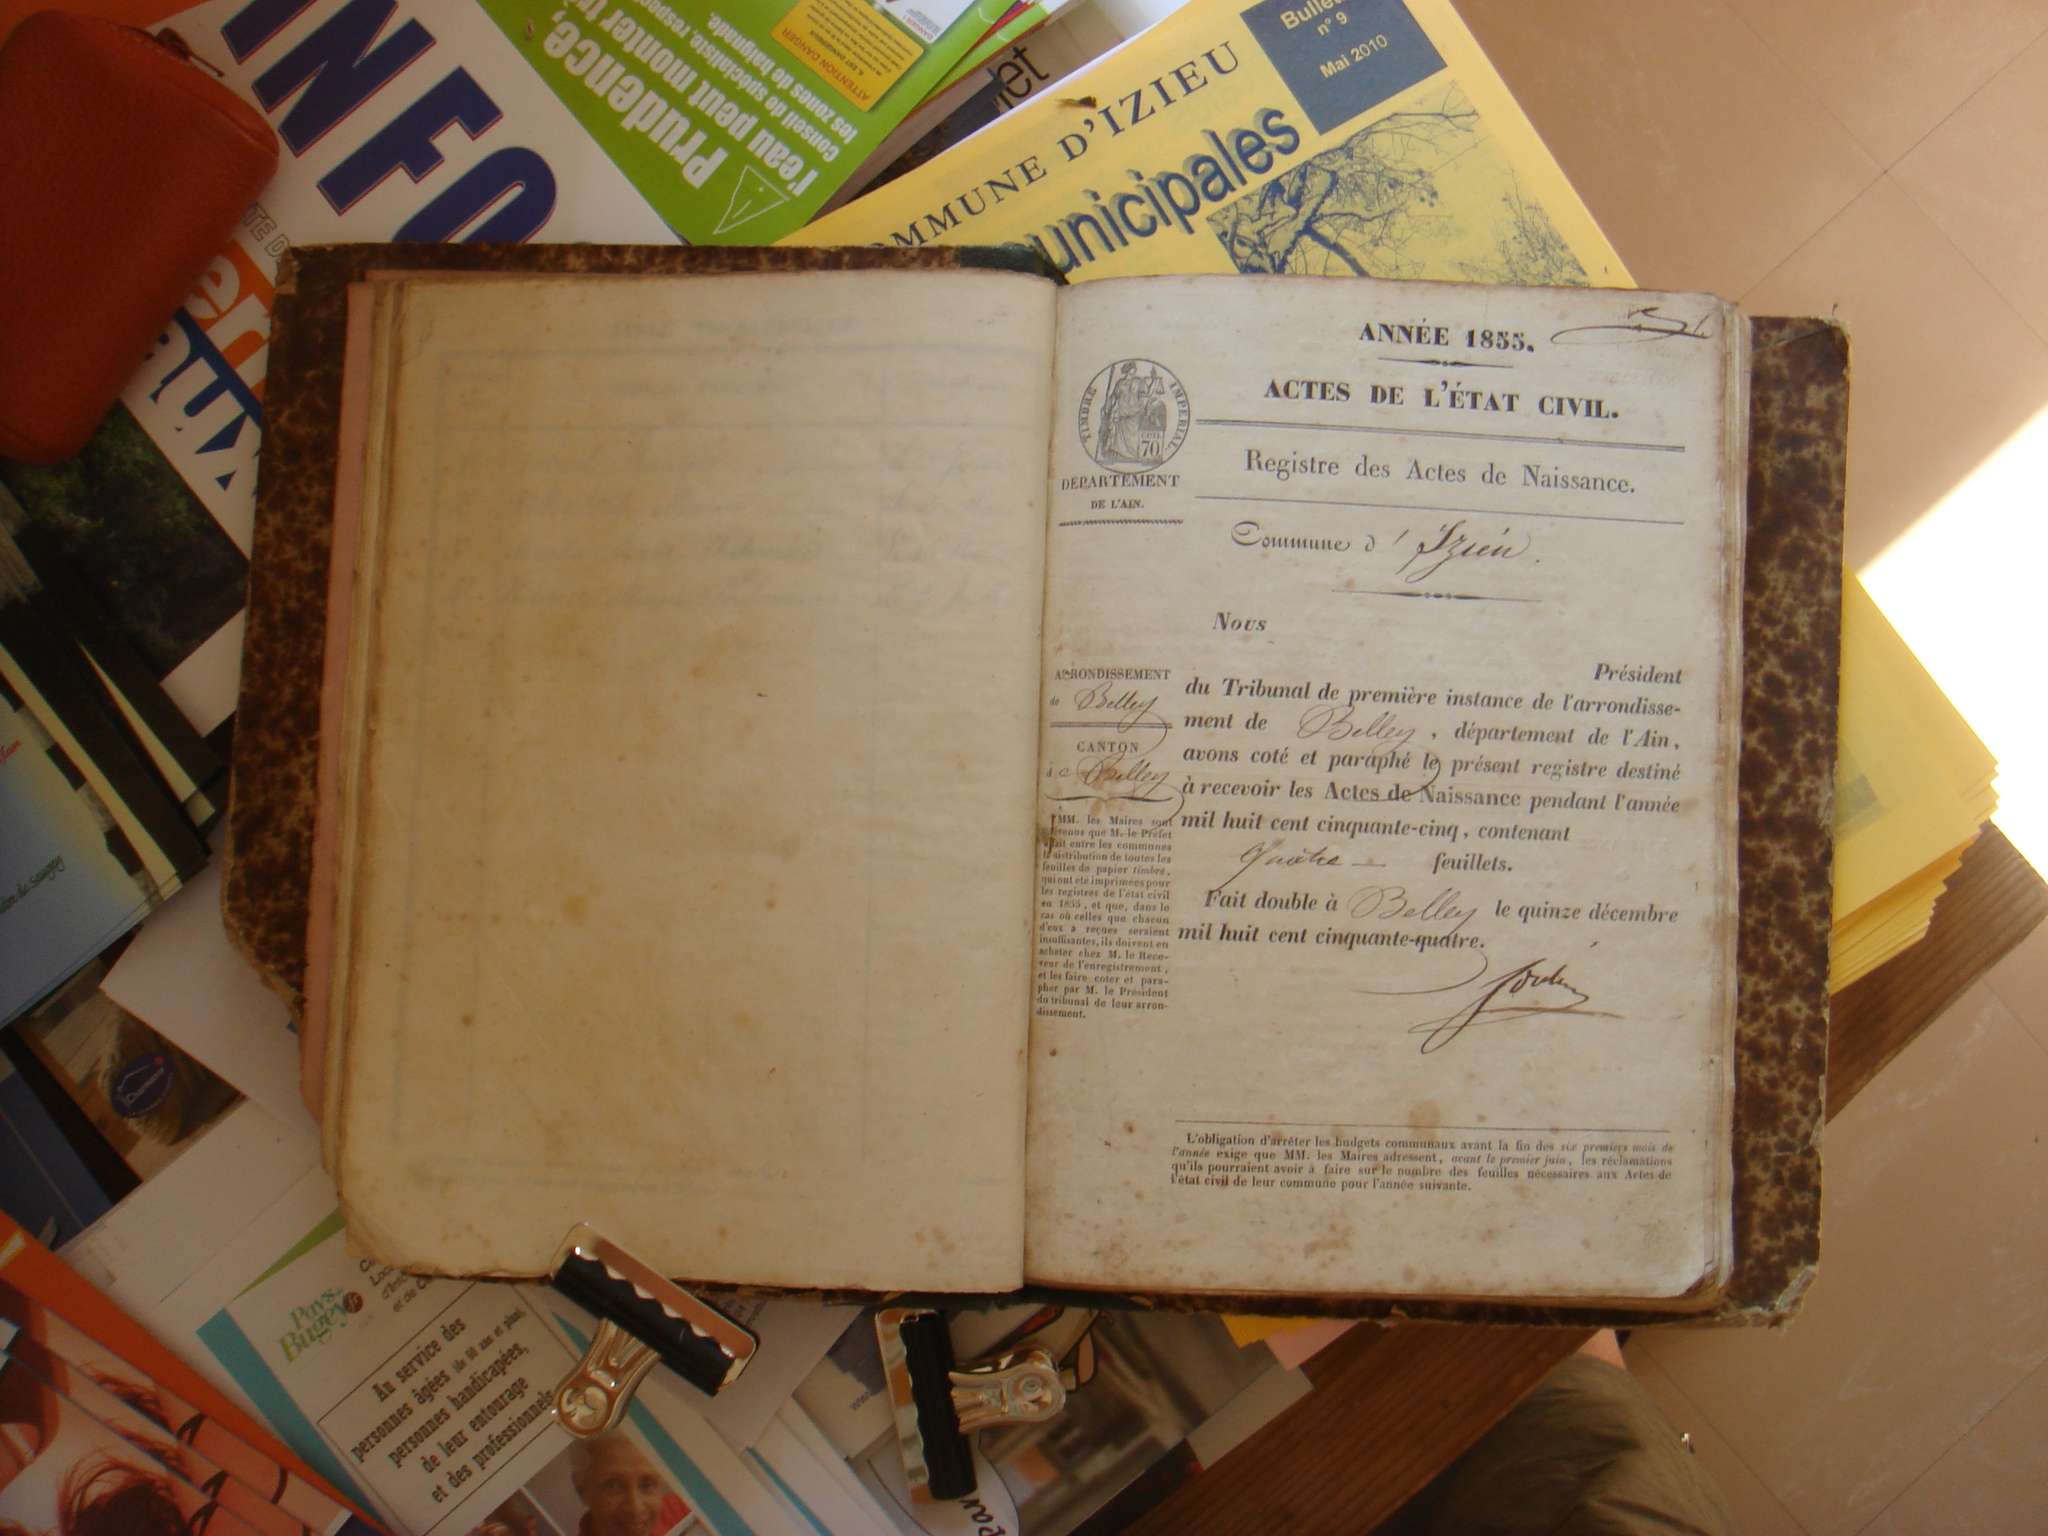 INFO
Prudence,
l'eau peut monter
Conseil de spécialiste, respec
les zones de baignade.
ATTENTION DANGER
COMMUNE D'IZIEU
unicipales
Bulletin
n° 9
Mai 2010
ANNÉE 1855.
ACTES DE L'ÉTAT CIVIL.
TIMBRE IMPÉRIAL
CEN.
70
DÉPARTEMENT
DE L'AIN.
Registre des Actes de Naissance.
Commune d'Izieu.
Nous
Président
du Tribunal de première instance de l'arrondisse-
ment de Belley, département de l'Ain,
avons coté et paraphé le présent registre destiné
à recevoir les Actes de Naissance pendant l'année
mil huit cent cinquante-cinq, contenant
quatre — feuillets.
Fait double à Belley le quinze décembre
mil huit cent cinquante-quatre.
ARRONDISSEMENT
de Belley
CANTON
de Belley
MM. les Maires sont
prévenus que M. le Préfet
fait entre les communes
la distribution de toutes les
feuilles de papier timbré,
qui ont été imprimées pour
les registres de l'état civil
en 1855, et que, dans le
cas où celles que chacun
d'eux a reçues seraient
insuffisantes, ils doivent en
acheter chez M. le Rece-
veur de l'enregistrement,
et les faire coter et para-
pher par M. le Président
du tribunal de leur arron-
dissement.
L'obligation d'arrêter les budgets communaux avant la fin des six premiers mois de
l'année exige que MM. les Maires adressent, avant le premier juin, les réclamations
qu'ils pourraient avoir à faire sur le nombre des feuilles nécessaires aux Actes de
l'état civil de leur commune pour l'année suivante.
Pays du
Bugey
Au service des
personnes âgées (de 60 ans et plus),
personnes handicapées,
de leur entourage
et des professionnels